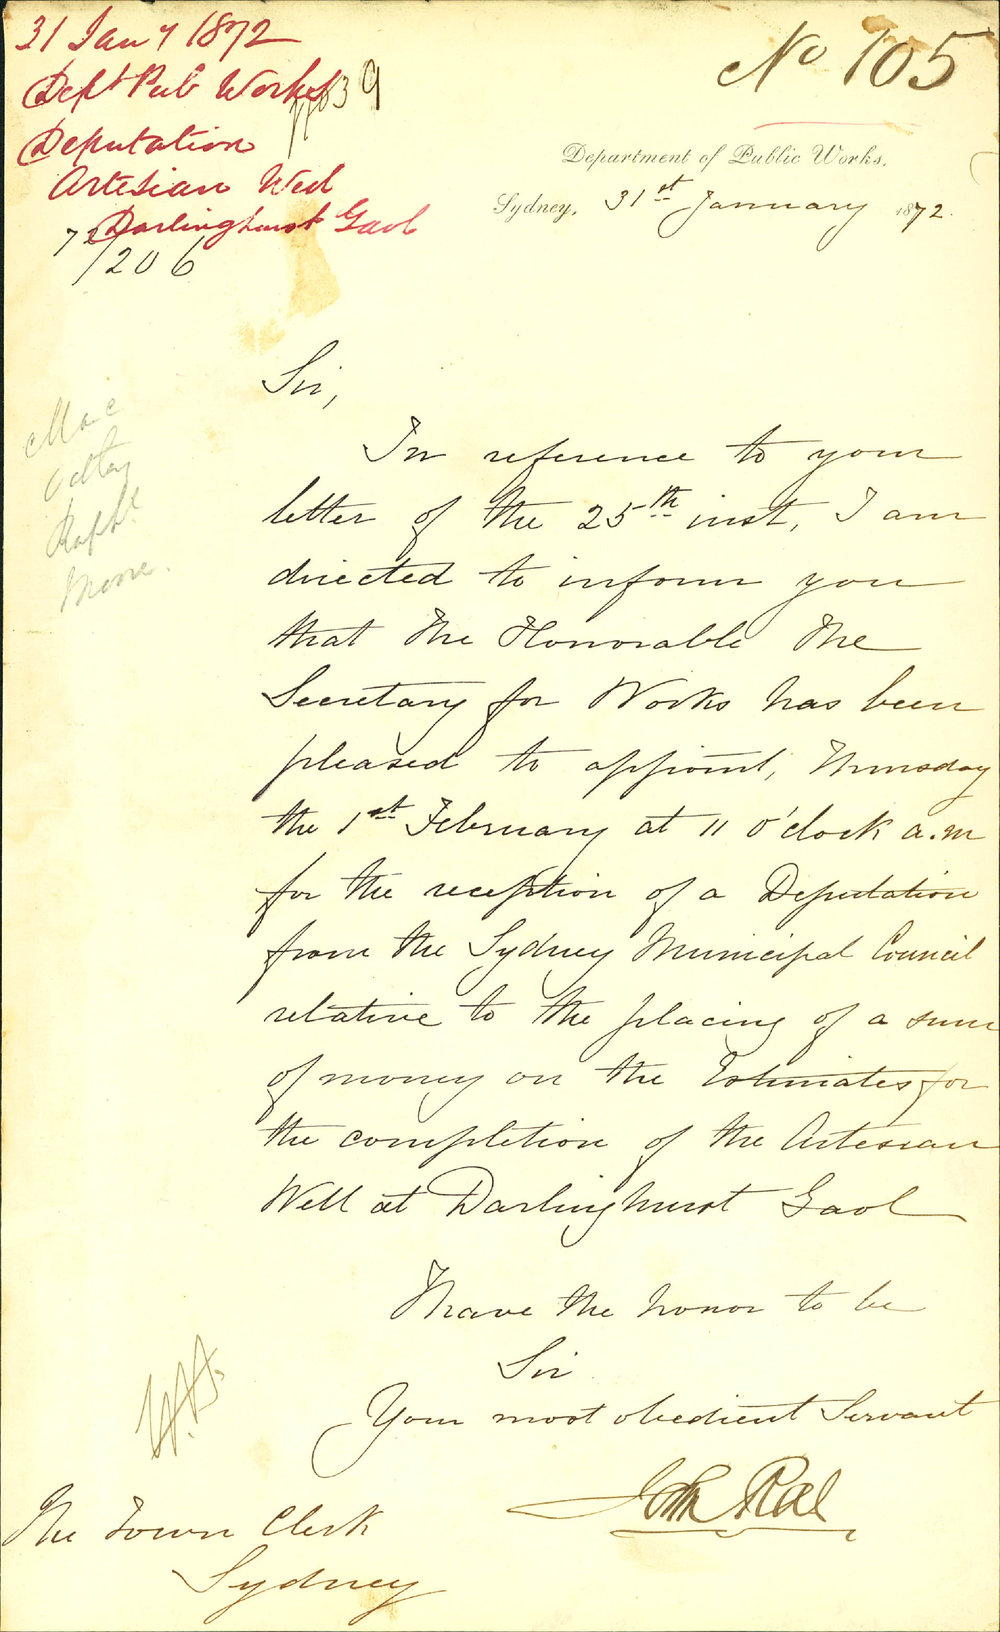 31 Jany 1872
Dept Pub Works
Deputation
Artesian Well
Darlinghurst Gaol
72/
1206
39
No 105
Department of Public Works,
Sydney, 31st January 1872.
Sir,
In reference to your
letter of the 25th inst, I am
directed to inform you
that the Honorable the
Secretary for Works has been
pleased to appoint, Thursday
the 1st February at 11 o'clock a.m
for the reception of a Deputation
from the Sydney Municipal Council
relative to the placing of a sum
of money on the Estimates for
the completion of the Artesian
Well at Darlinghurst Gaol
I have the honor to be
Sir
Your most obedient Servant
John Rae
The Town Clerk
Sydney